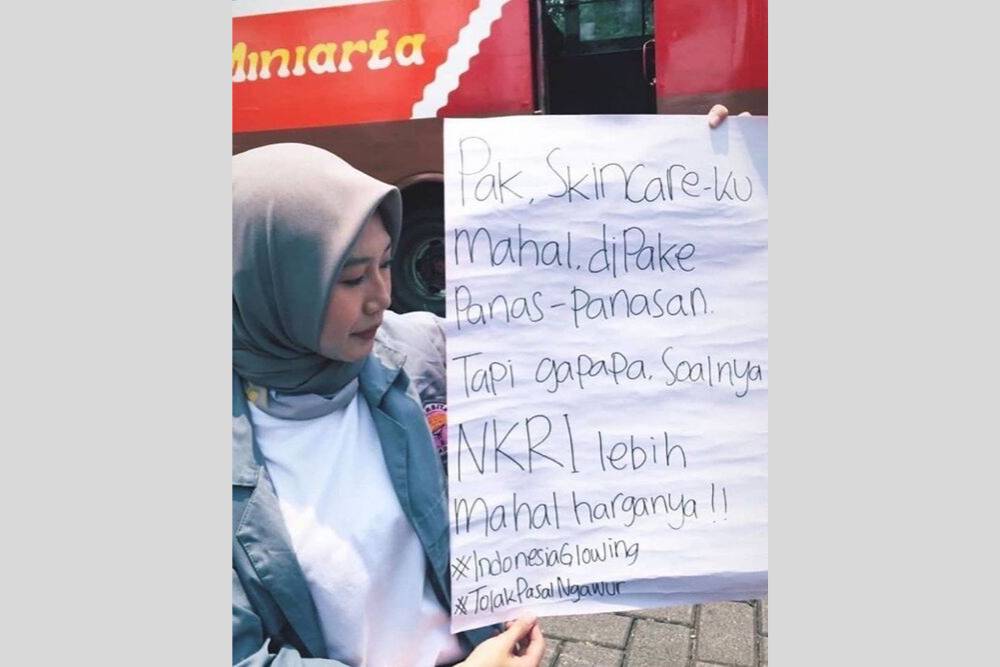 Miniarta
Pak, Skincare-ku
Mahal. diPake
Panas-Panasan.
Tapi gapapa. Soalnya
NKRI lebih
Mahal harganya !!
#IndonesiaGlowing
#TolakPasalNgawur